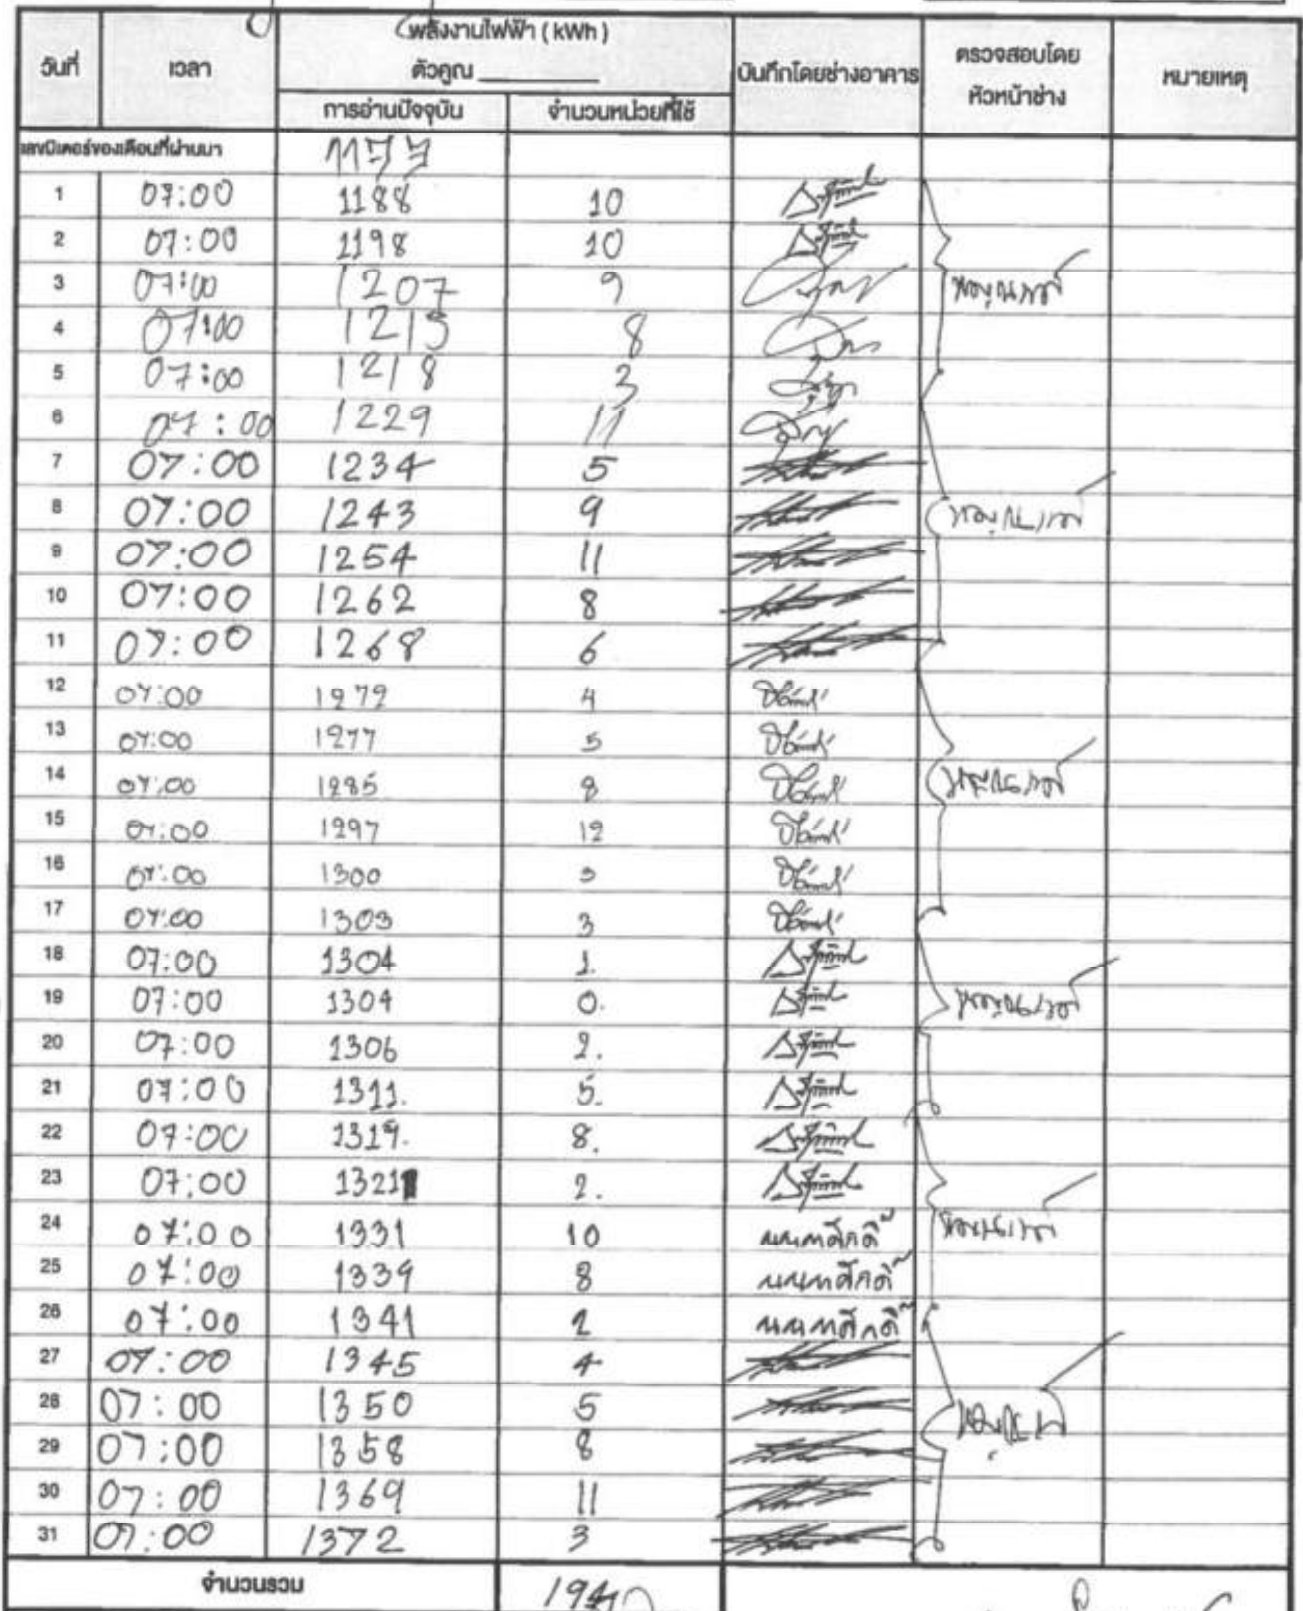 พลังงานไฟฟ้า ( kWh )
วันที่ เวลา ตัวคูณ บันทึกโดยช่างอาคาร ตรวจสอบโดย หัวหน้าช่าง หมายเหตุ
การอ่านปัจจุบัน จำนวนหน่วยที่ใช้
เลขมิเตอร์ของเดือนที่ผ่านมา
1 07:00 1188 10
2 07:00 1198 10
3 07:00 1207 9
4 07:00 1215 8
5 07:00 1218 3
6 07:00 1229 11
7 07:00 1234 5
8 07:00 1243 9
9 07:00 1254 11
10 07:00 1262 8
11 07:00 1268 6
12 07:00 1272 4
13 07:00 1277 5
14 07:00 1285 8
15 07:00 1297 12
16 07:00 1300 3
17 07:00 1303 3
18 07:00 1304 1.
19 07:00 1304 0.
20 07:00 1306 2.
21 07:00 1311. 5.
22 07:00 1319. 8.
23 07:00 1321 2.
24 07:00 1331 10
25 07:00 1339 8
26 07:00 1341 2
27 07:00 1345 4
28 07:00 1350 5
29 07:00 1358 8
30 07:00 1369 11
31 07:00 1372 3
จำนวนรวม